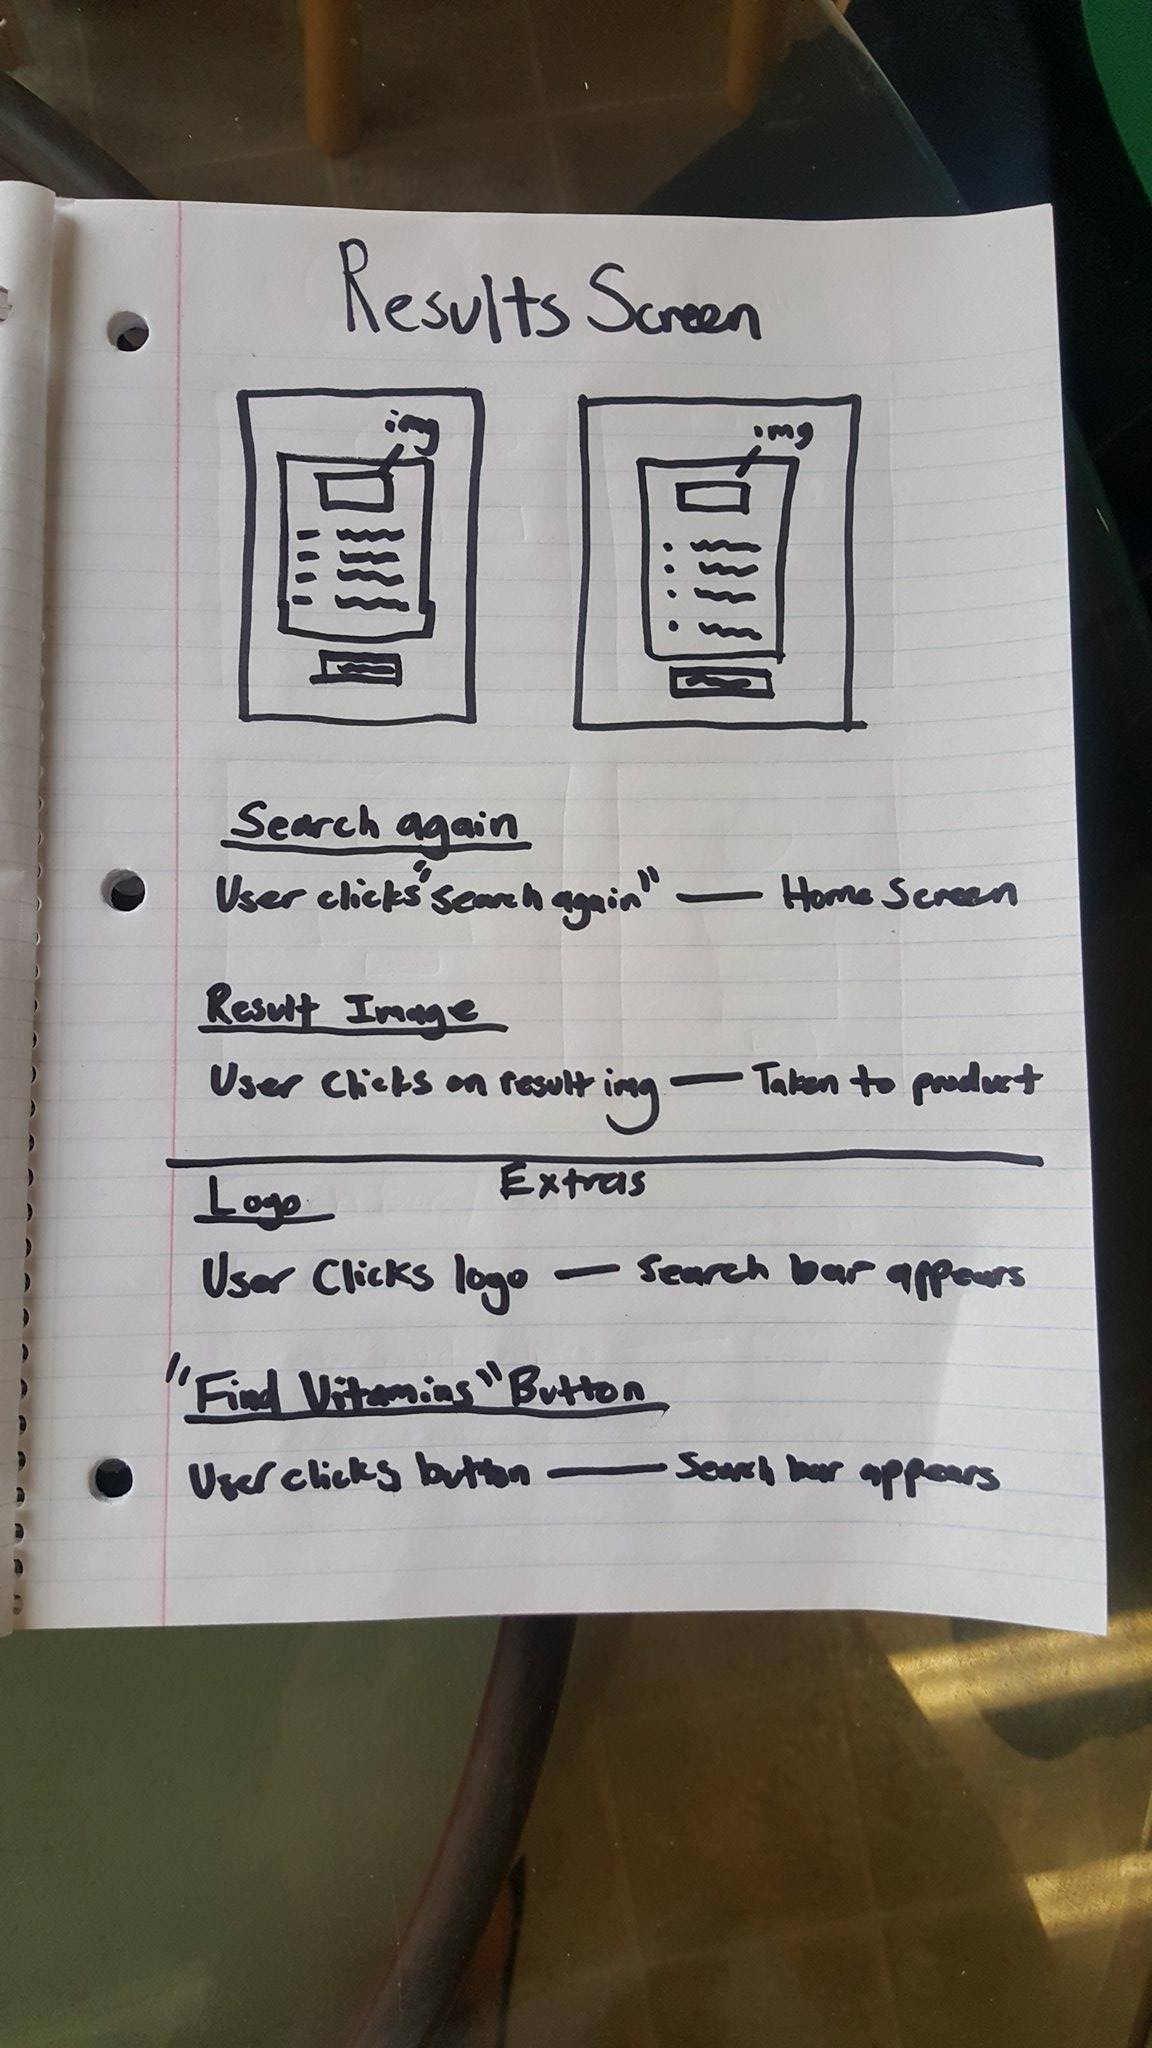 Results Screen
img
img
Search again
User clicks "search again" — Home Screen
Result Image
User clicks on result img — Taken to product
Extras
Logo
User Clicks logo — Search bar appears
"Find Vitamins" Button
User clicks button — Search bar appears